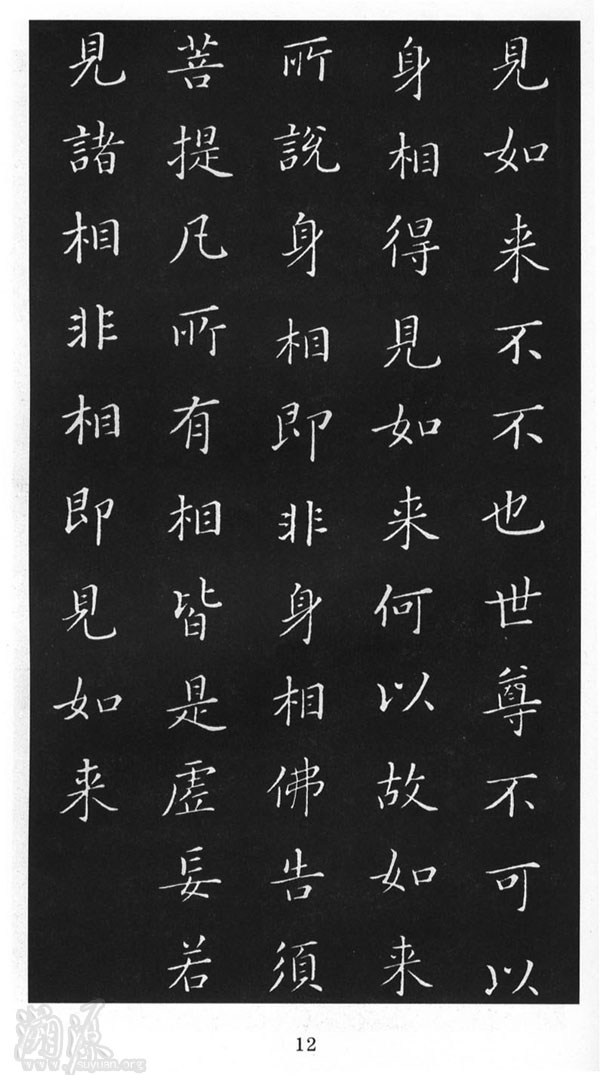 見如来不不也世尊不可以
身相得見如来何以故如来
所説身相即非身相佛告須
菩提凡所有相皆是虚妄若
見諸相非相即見如来
12
溯源
www.suyuan.org